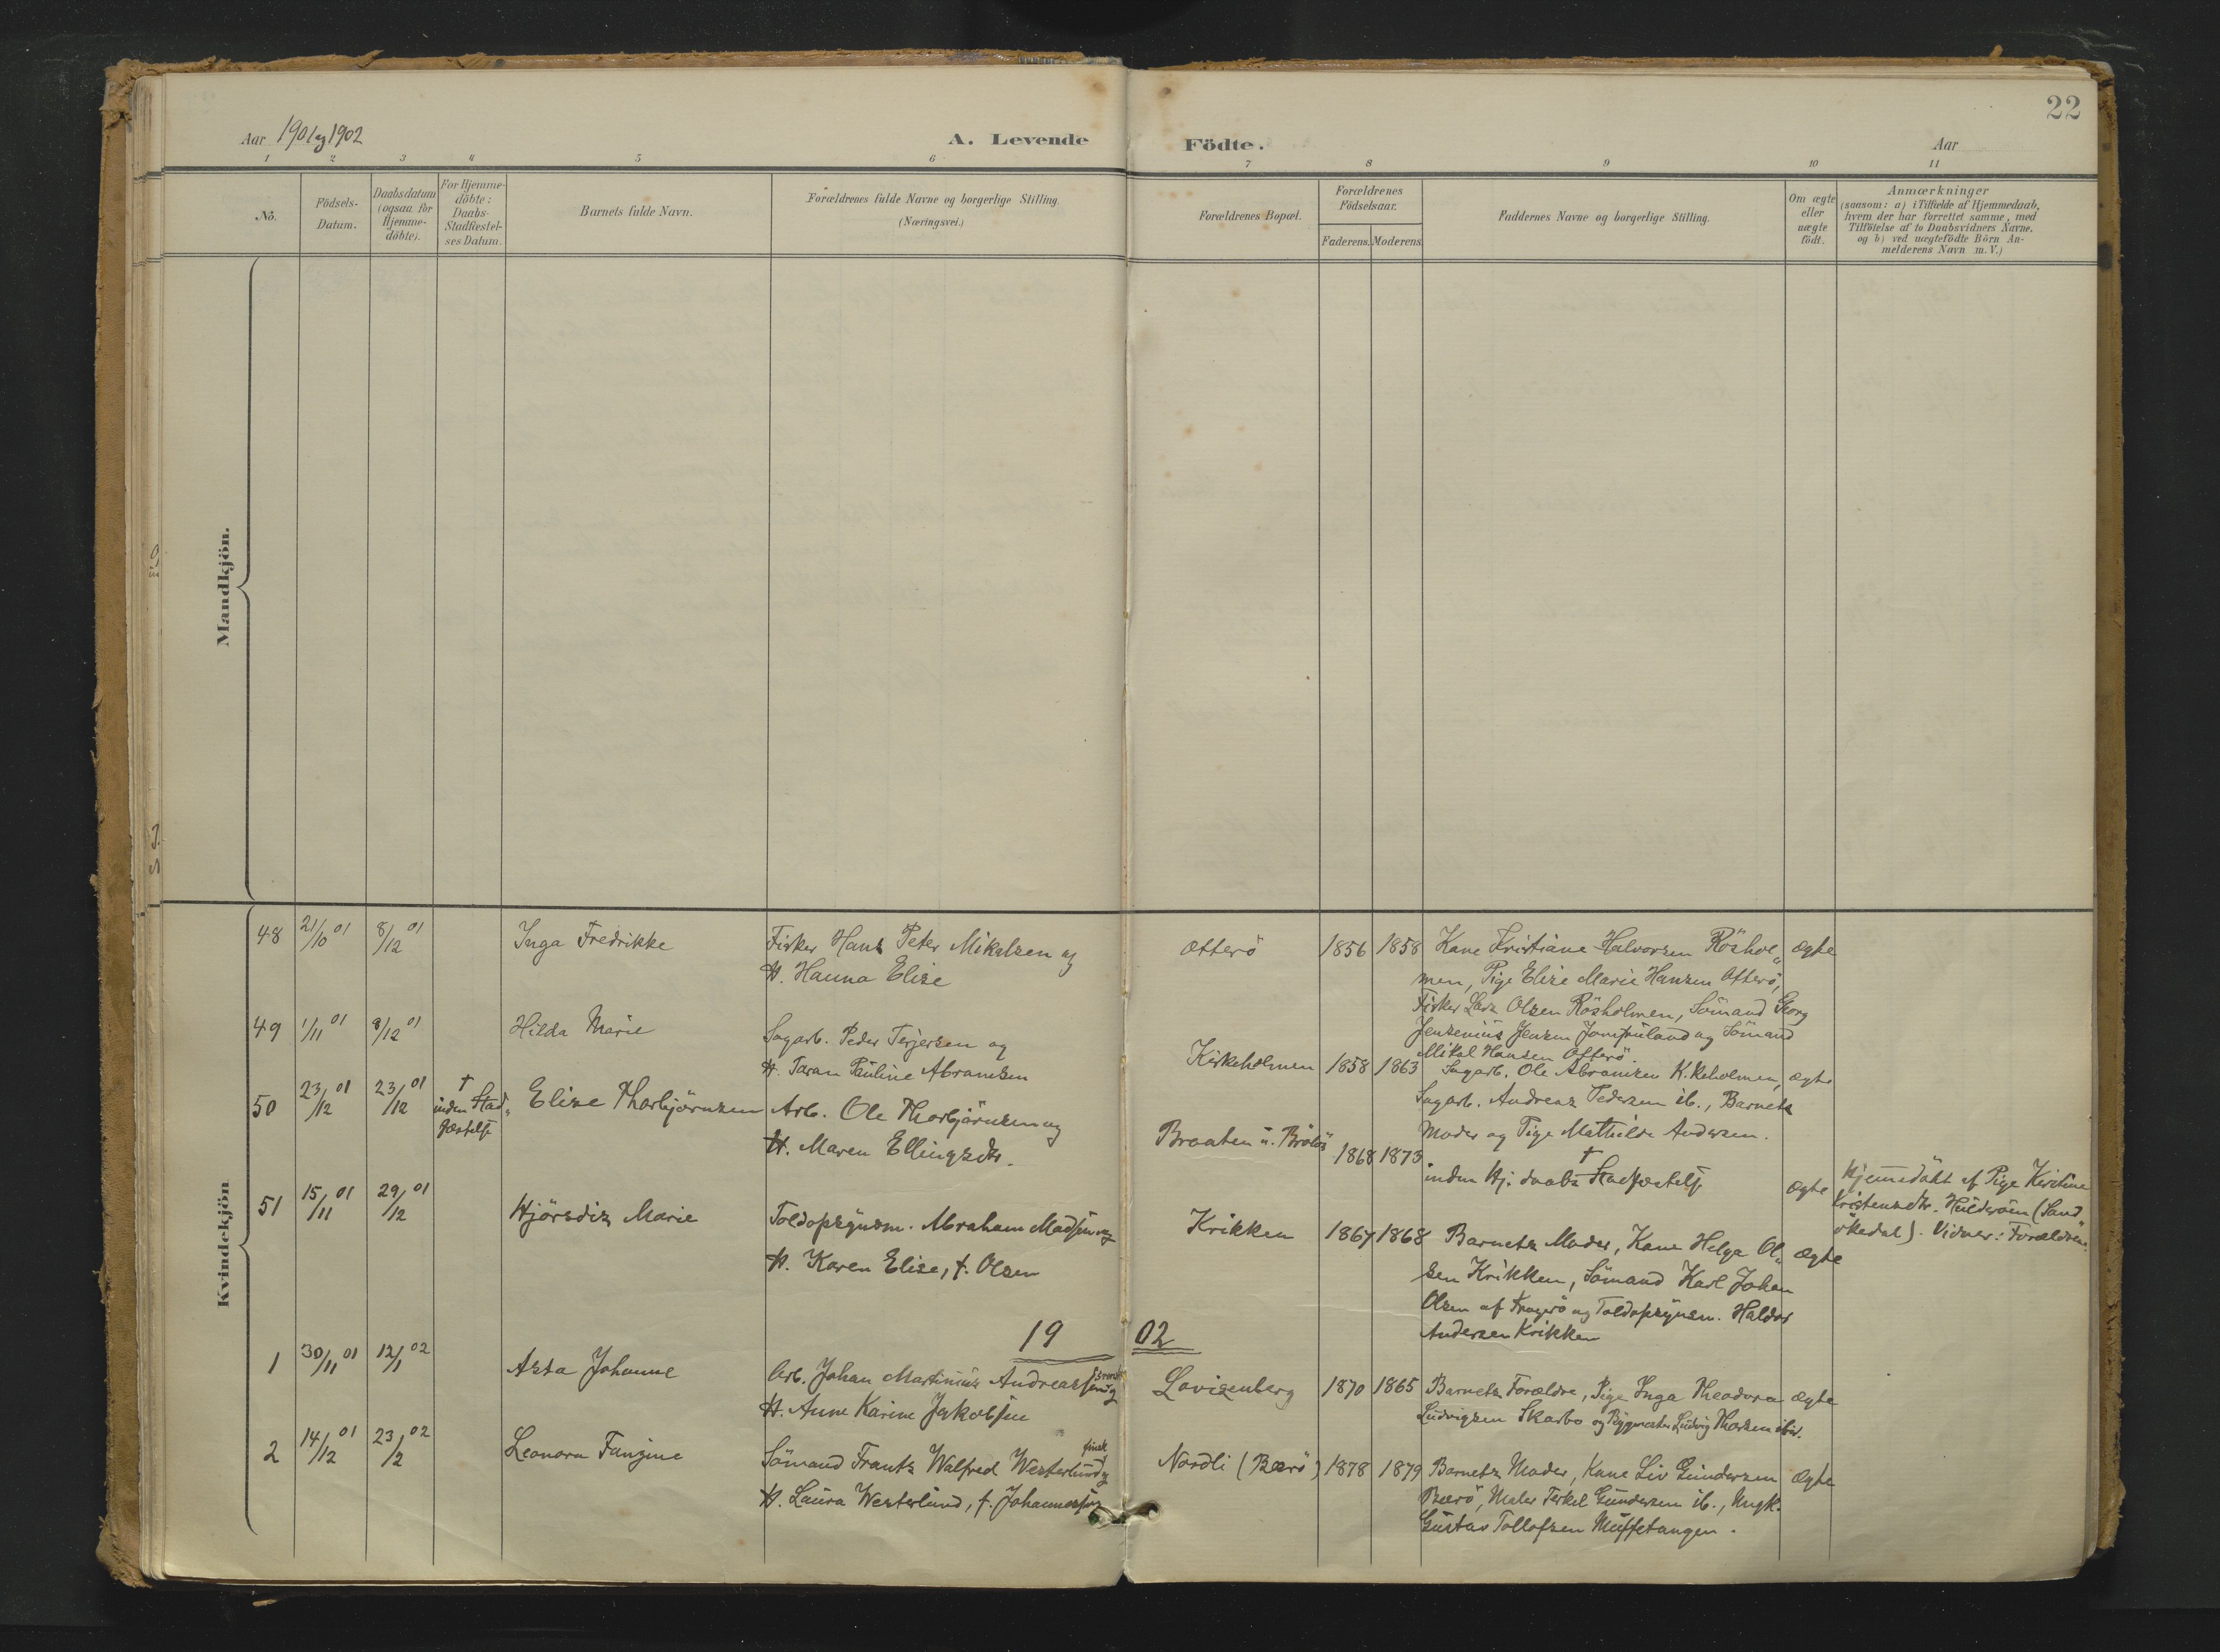 22
Aar 1901 og 1902
A. Levende Födte.
Aar
1 2 3 4 5 6 7 8 9 10 11
No.
Födsels-
Datum.
Daabsdatum
(ogsaa for
Hjemme-
döbte).
For Hjemme-
döbte:
Daabs-
Stadfæstel-
ses Datum.
Barnets fulde Navn.
Forældrenes fulde Navne og borgerlige Stilling.
(Næringsvei.)
Forældrenes Bopæl.
Forældrenes
Födselsaar.
Faderens. Moderens.
Faddernes Navne og borgerlige Stilling.
Om ægte
eller
uægte
födt.
Anmærkninger
(saasom: a) i Tilfælde af Hjemmedaab,
hvem der har forrettet samme, med
Tilföielse af to Daabsvidners Navne.
og b) ved uægtefödte Börn An-
melderens Navn m. V.)
Mandkjön.
Kvindekjön
48 21/10 01 8/12 01 Inga Fredrikke
Fisker Hans Peter Mikalsen og
H. Hanna Elise
Otterö 1856 1858
Kone Kristiane Halvorsen Röshol„
men, Pige Elise Marie Hansen Otterö,
Fisker Lars Olsen Rösholmen, Sömand Georg
Jensenius Jensen Jomfruland og Sömand
Mikal Hansen Otterö.
ægte
49 1/11 01 8/12 01 Hilda Marie
Sagarb. Peder Terjersen og
H. Taran Pauline Abramsen
Kirkeholmen 1858 1863
Sagarb. Ole Abramsen K.keholmen,
Sagarb. Andreas Pedersen ib., Barnets
Moder og Pige Mathilde Andersen.
ægte
50 23/12 01 23/12 01
†
inden Stad„
fæstelse
Elise Thorbjörnsen
Arb. Ole Thorbjörnsen og
H. Maren Ellingsdtr.
Braaten u. Brölös 1868 1873
†
inden Hj. daabs Stadfæstelse
ægte
Hjemmedöbt af Pige Kirstine
Kristensdtr. Hulderöen (Sand„
ökedal). Vidner: Forældrene.
51 15/11 01 29/12 01 Hjörsdis Marie
Toldopsynsm. Abraham Madsen og
H. Karen Elise, f. Olsen
Krikken 1867 1868
Barnets Moder, Kone Helga Ol„
sen Krikken, Sömand Karl Johan
Olsen af Kragerö og Toldopsynsm. Haldor
Andersen Krikken
ægte
1902
1 30/11 01 12/1 02 Asta Johanne
Arb. Johan Martinius Andreassen svensk og
H. Anne Karine Jakobsen
Lovisenberg 1870 1865
Barnets Forældre, Pige Inga Theodora
Ludvigsen Skarbo og Bygmester Ludvig Thorsen ibid.
ægte
2 14/12 01 23/2 02 Leonora Fangine
Sömand Frants Walfred Westerlund finsk og
H. Laura Westerlund, f. Johannessen
Nordli (Bærö) 1878 1879
Barnets Moder, Kone Liv Gundersen
Bærö, Maler Terkel Gundersen ib., Ungk.
Gustav Tollofsen Muffetangen.
ægte